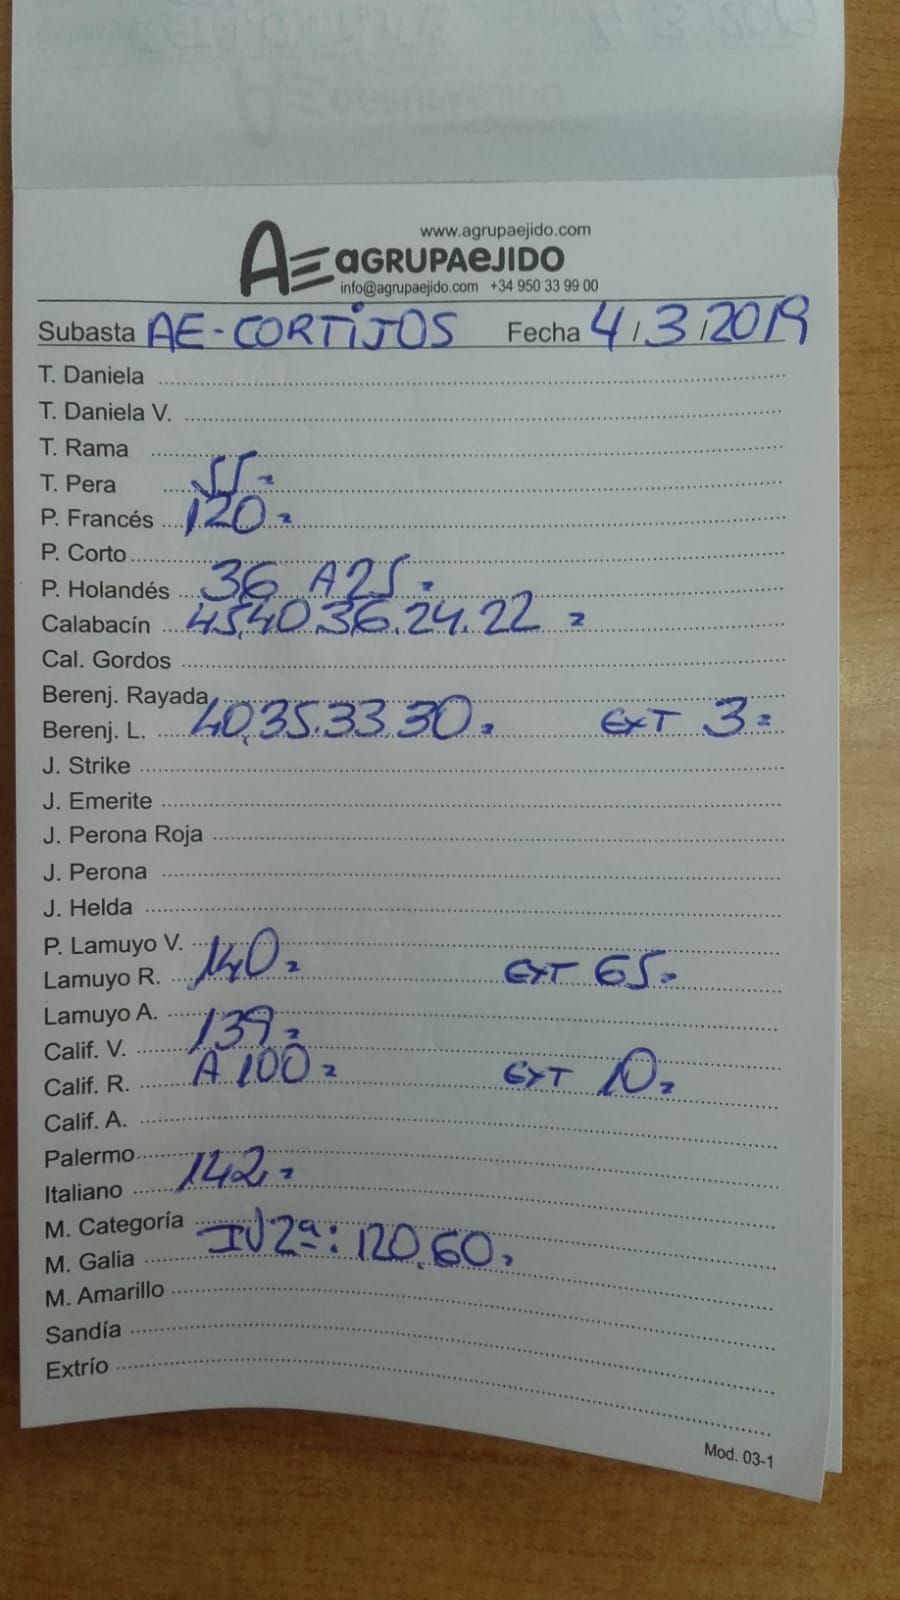 www.agrupaejido.com
AE aGRUPAeJIDO
info@agrupaejido.com +34 950 33 99 00
Subasta AE-CORTIJOS Fecha 4/3/2019
T. Daniela
T. Daniela V.
T. Rama
T. Pera 55=
P. Francés 120=
P. Corto
P. Holandés 36 A 25=
Calabacín 45.40.36.24.22 =
Cal. Gordos
Berenj. Rayada
Berenj. L. 40.35.33.30= EXT 3=
J. Strike
J. Emerite
J. Perona Roja
J. Perona
J. Helda
P. Lamuyo V.
Lamuyo R. 140= EXT 65=
Lamuyo A.
Calif. V. 139=
Calif. R. A 100= EXT 10=
Calif. A.
Palermo
Italiano 142=
M. Categoría
M. Galia IV 2ª: 120.60=
M. Amarillo
Sandía
Extrío
Mod. 03-1